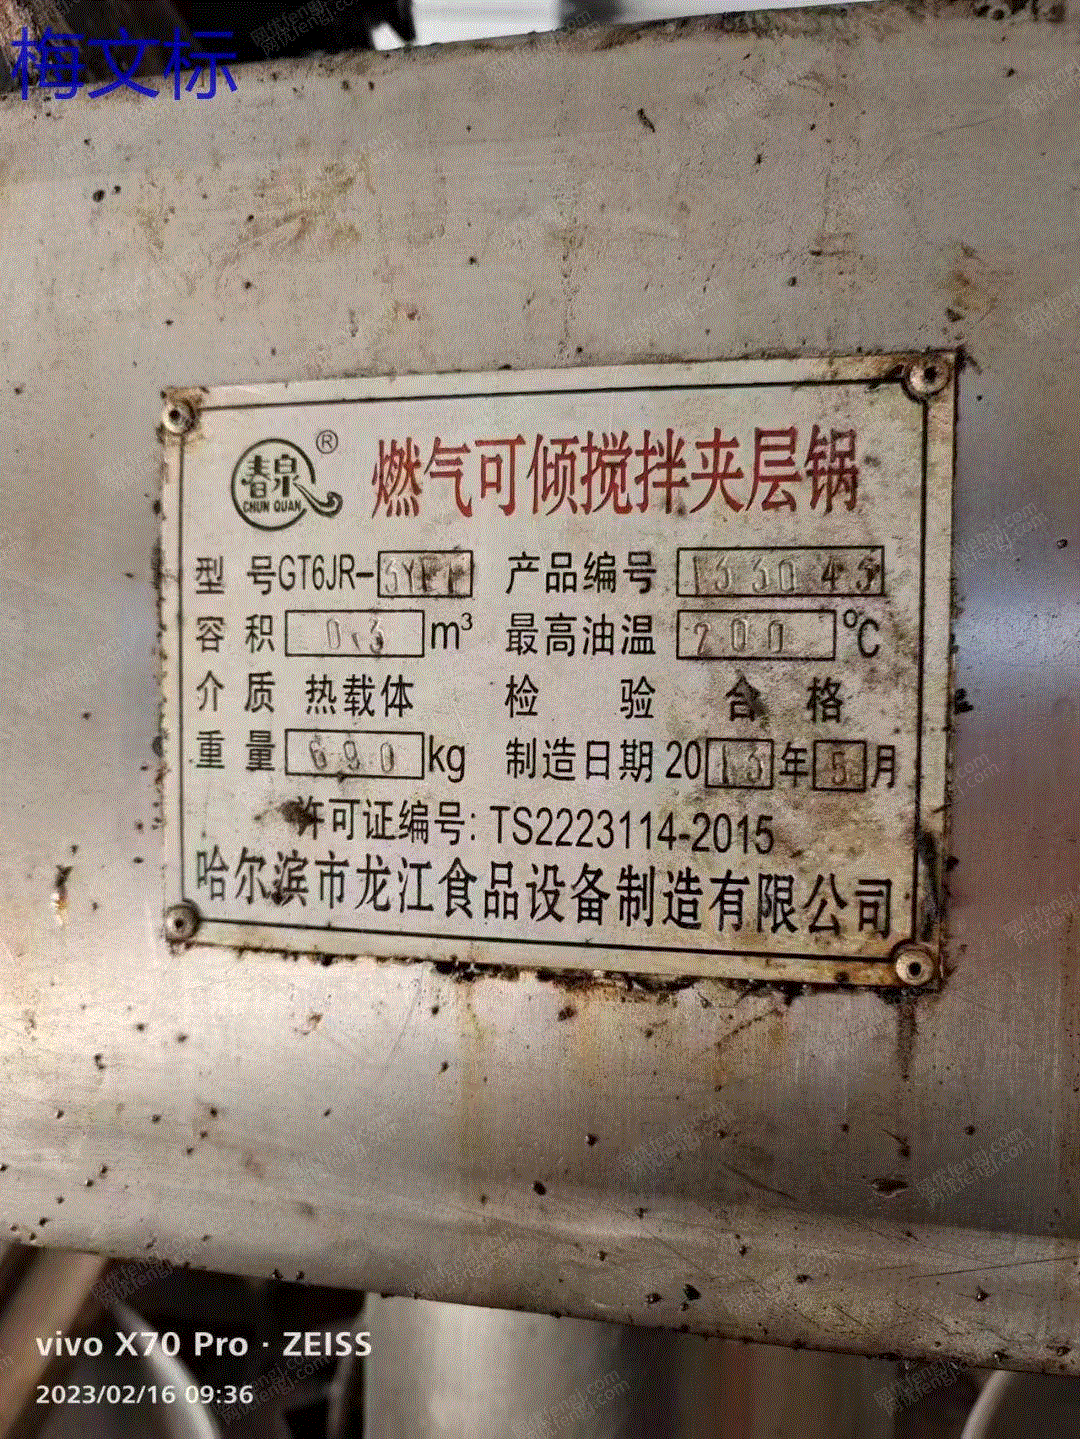 梅文标
春泉
CHUN QUAN
®
燃气可倾搅拌夹层锅
型号GT6JR- 产品编号 133043
容积 0.3 m³ 最高油温 200 ℃
介质 热载体 检验 合格
重量 690 kg 制造日期 2013年5月
许可证编号: TS2223114-2015
哈尔滨市龙江食品设备制造有限公司
vivo X70 Pro · ZEISS
2023/02/16 09:36